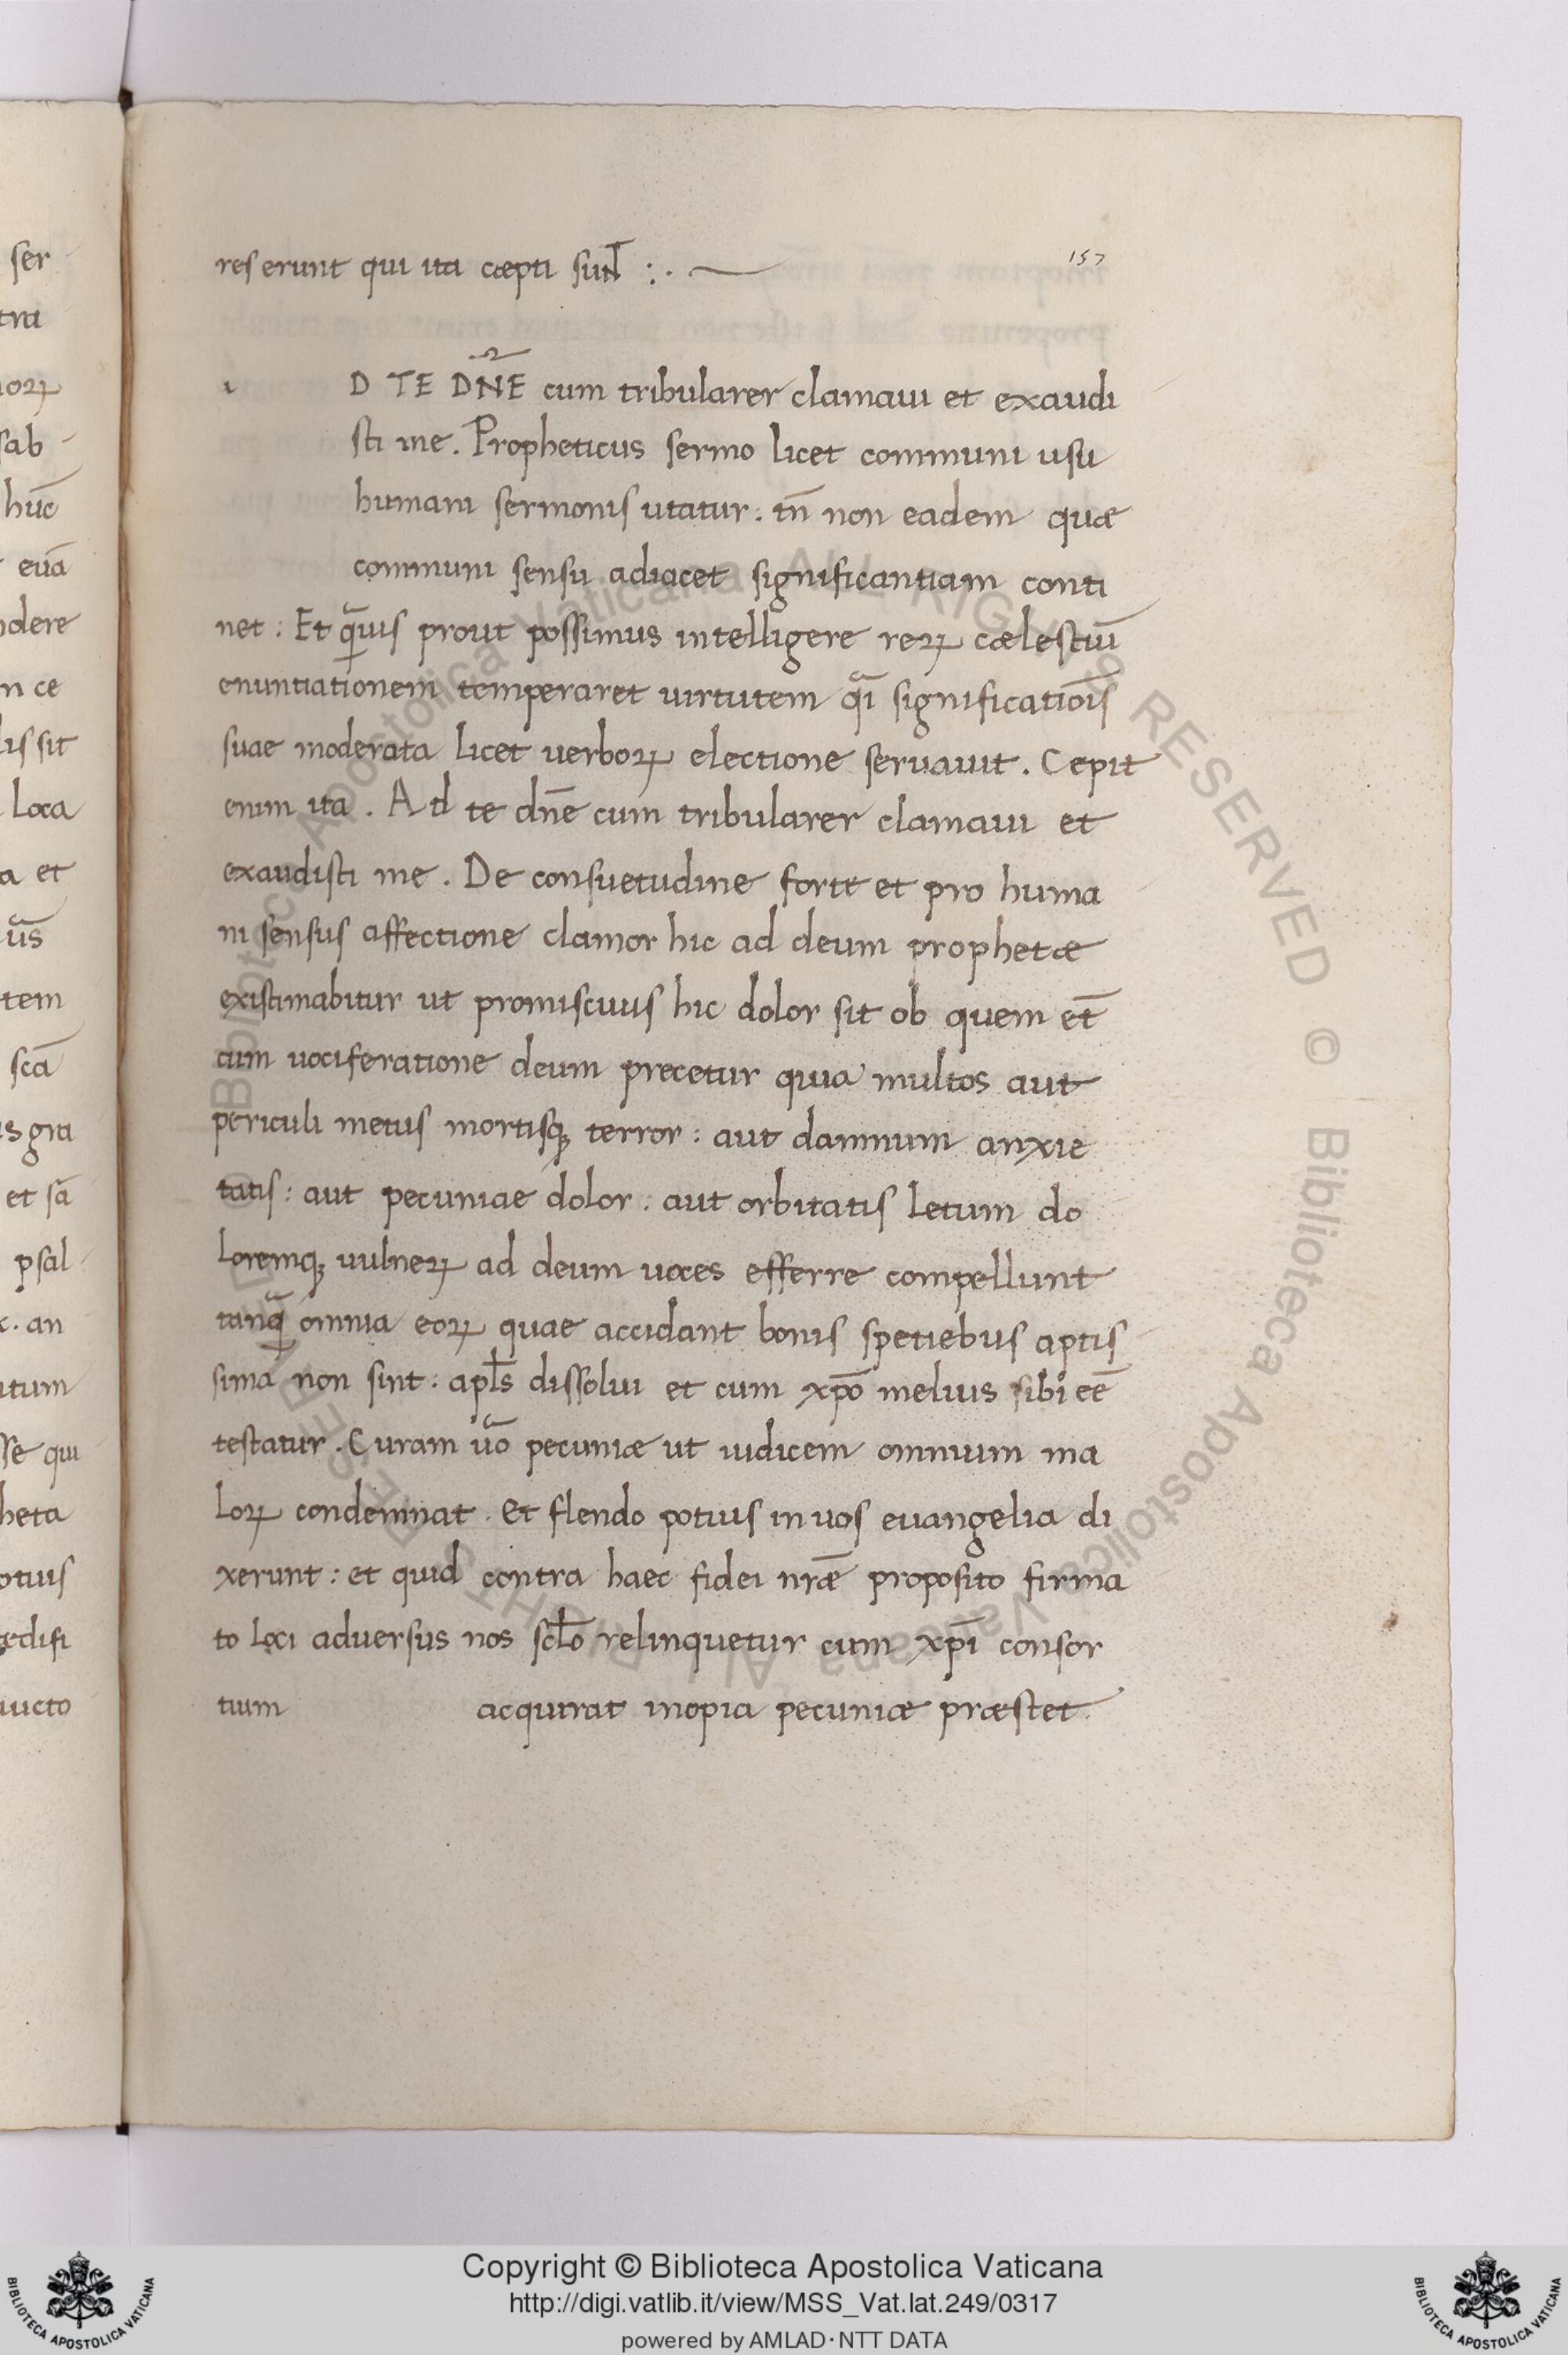 157
res erunt qui ita cæpti sunt :. —
ı D TE DN̄E cum tribularer clamaui et exaudi
sti me. Propheticus sermo licet communi usu
humani sermonis utatur. tn̄ non eadem quæ
communi sensu adiacet significantiam conti
net : Et q̄uis prout possimus intelligere reꝝ cælestiū
enuntiationem temperaret uirtutem qi significatiōis
suae moderata licet uerboꝝ electione seruauit. Cepit
enim ita. Ad te dn̄e cum tribularer clamaui et
exaudisti me. De consuetudine forte et pro huma
ni sensus affectione clamor hic ad deum prophetæ
existimabitur ut promiscuus hic dolor sit ob quem et̄
cum uociferatione deum precetur quia multos aut
periculi metus mortisq; terror : aut damnum anxie
tatis : aut pecuniae dolor : aut orbitatis letum do
loremq; uulneꝝ ad deum uoces efferre compellunt
tanq̄ omnia eoꝝ quae accidant bonis spetiebus aptis
sima non sint : apl̄s dissolui et cum xp̄o melius sibi eē
testatur. Curam u̅o pecuniæ ut iudicem omnium ma
loꝝ condemnat. Et flendo potius in uos euangelia di
xerunt : et quid contra haec fidei nr̄æ proposito firma
to loci aduersus nos scl̄o relinquetur cum xp̄i consor
tium acquirat inopia pecuniæ præstet.
ser
tra
oꝝ
sab
hūc
euā
dere
n ce
lis sit
loca
a et
us̄
tem
scā
s gra
et sā
psal
. an
itum
sse qui
heta
otius
ædifi
ucto
© Biblioteca Apostolica Vaticana ALL RIGHTS RESERVED © Biblioteca Apostolica Vaticana ALL RIGHTS RESERVED
Copyright © Biblioteca Apostolica Vaticana
http://digi.vatlib.it/view/MSS_Vat.lat.249/0317
powered by AMLAD·NTT DATA
BIBLIOTECA APOSTOLICA VATICANA
BIBLIOTECA APOSTOLICA VATICANA